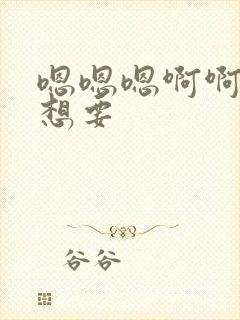 嗯嗯嗯啊啊
想要
谷谷